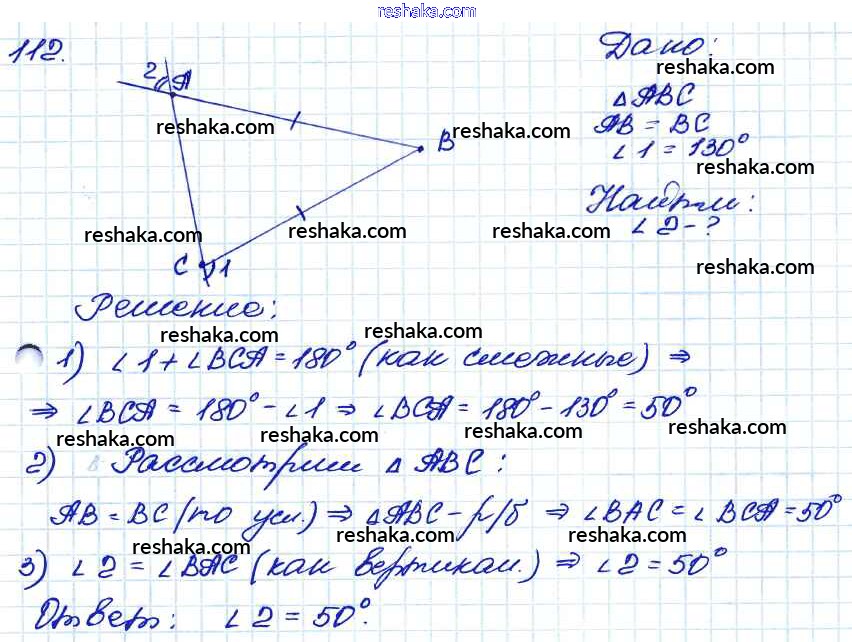 reshaka.com
112.
Дано:
reshaka.com
2 A
△ABC
reshaka.com
B
reshaka.com
AB = BC
∠1 = 130°
reshaka.com
Найти:
reshaka.com
reshaka.com
reshaka.com
∠2 - ?
C 1
reshaka.com
Решение:
reshaka.com
reshaka.com
1) ∠1 + ∠BCA = 180° (как смежные) ⇒
⇒ ∠BCA = 180° - ∠1 ⇒ ∠BCA = 180° - 130° = 50°
reshaka.com
reshaka.com
reshaka.com
reshaka.com
2) Рассмотрим △ABC:
AB = BC (по усл.) ⇒ △ABC - р/б ⇒ ∠BAC = ∠BCA = 50°
reshaka.com
reshaka.com
reshaka.com
3) ∠2 = ∠BAC (как вертикал.) ⇒ ∠2 = 50°
Ответ: ∠2 = 50°.